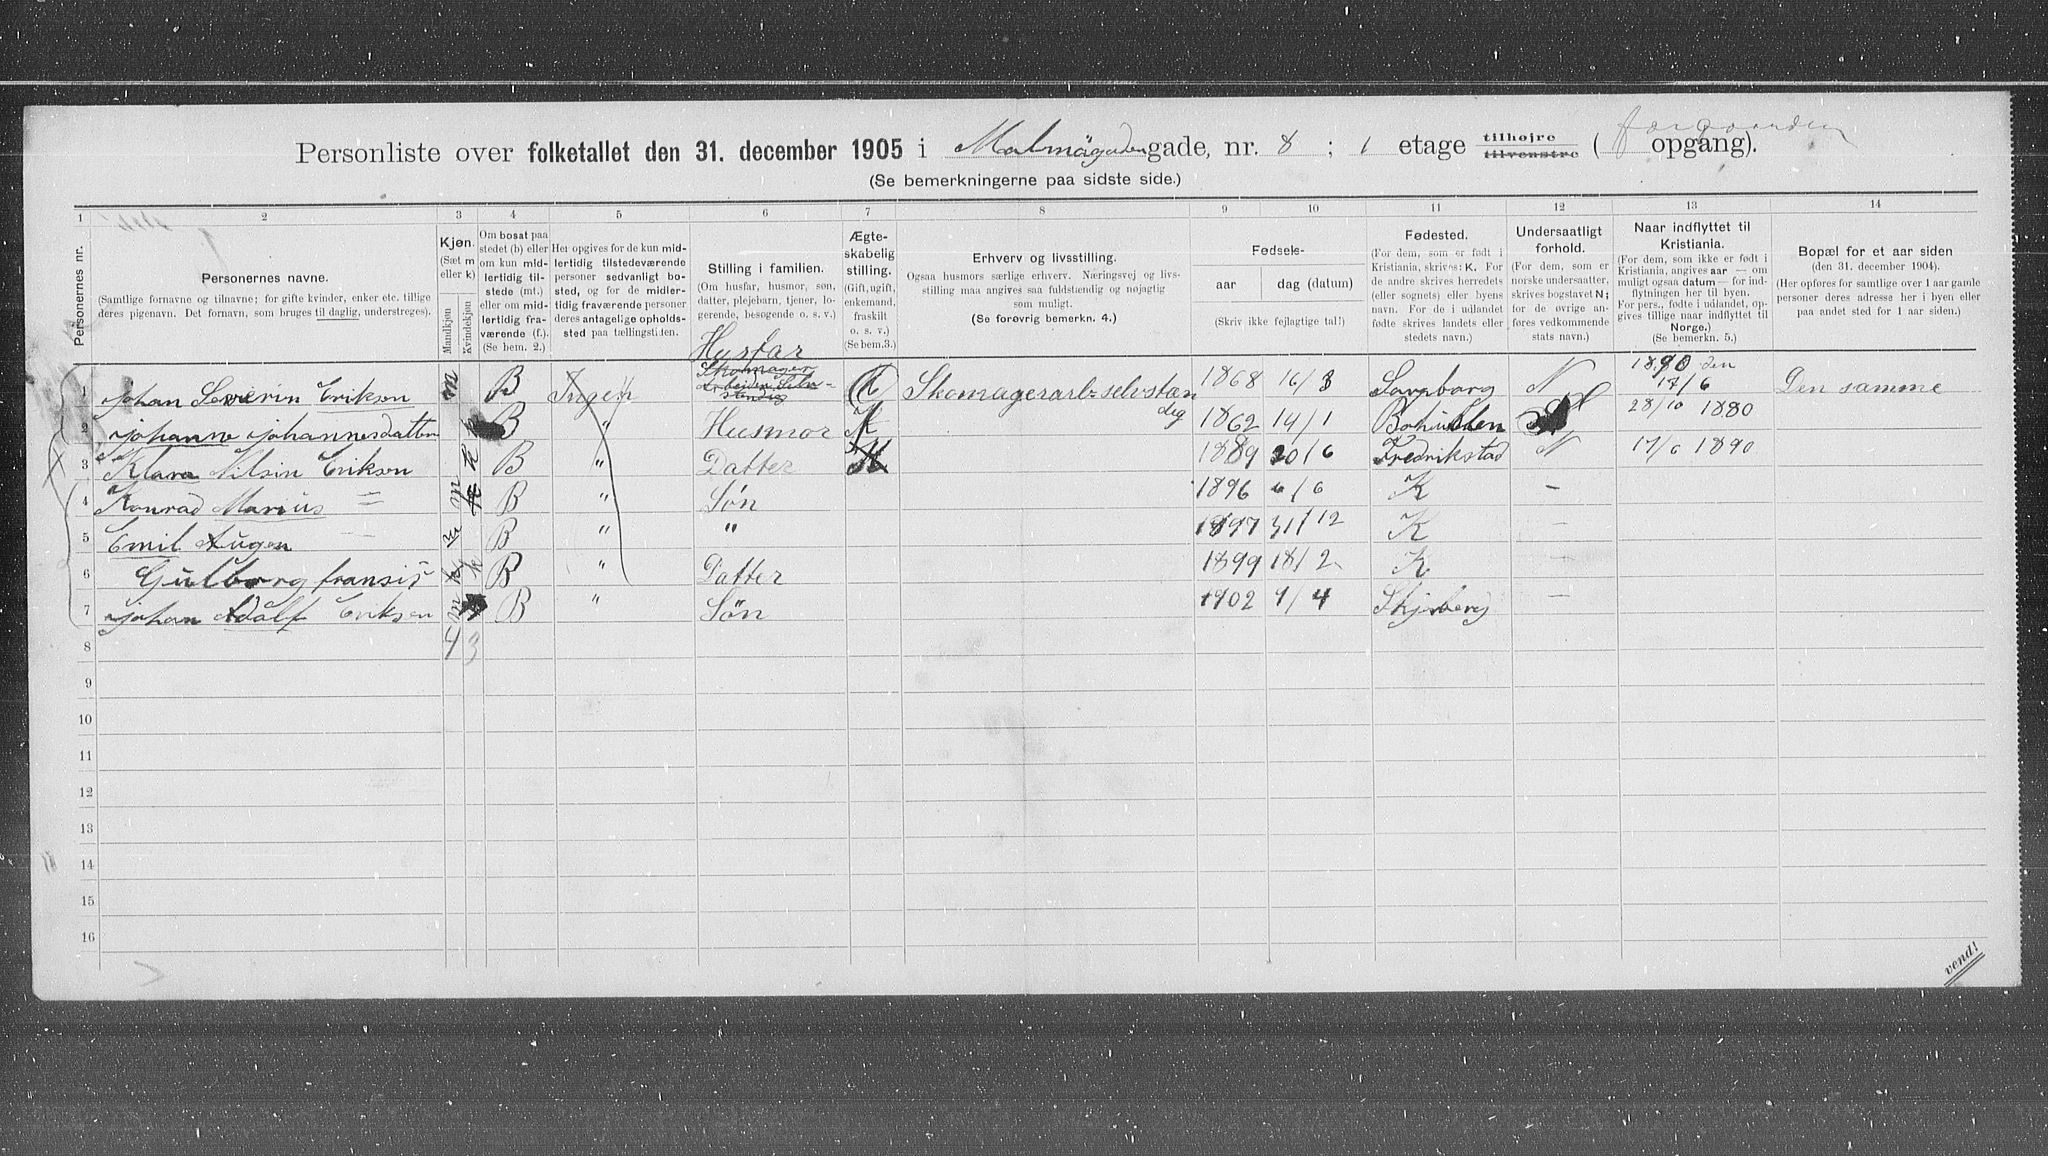 Personliste over folketallet den 31. december 1905 i Malmögadengade, nr. 8 ; 1 etage tilhøjre tilvenstre ( opgang).
(Se bemerkningerne paa sidste side.)
1 2 3 4 5 6 7 8 9 10 11 12 13 14
Personernes nr.
Personernes navne.
(Samtlige fornavne og tilnavne; for gifte kvinder, enker etc. tillige
deres pigenavn. Det fornavn, som bruges til daglig, understreges).
Kjøn.
(Sæt m
eller k)
Mandkjøn
Kvindekjøn
Om bosat paa
stedet (b) eller
om kun mid-
lertidig til-
stede (mt.)
eller om mid-
lertidig fra-
værende (f.).
(Se bem. 2.)
Her opgives for de kun mid-
lertidig tilstedeværende
personer sedvanligt bo-
sted, og for de midler-
tidig fraværende personer
deres antagelige opholds-
sted paa tællingstiden.
Stilling i familien.
(Om husfar, husmor, søn,
datter, plejebarn, tjener, lo-
gerende, besøgende o. s. v.)
Ægte-
skabelig
stilling.
(Gift, ugift,
enkemand,
fraskilt
o. s. v.)
(Se bem.3.)
Erhverv og livsstilling.
Ogsaa husmors særlige erhverv. Næringsvej og livs-
stilling maa angives saa fuldstændig og nøjagtig
som muligt.
(Se forøvrig bemerkn. 4.)
Fødsels-
aar dag (datum)
(Skriv ikke fejlagtige tal!)
Fødested.
(For dem, som er født i
Kristiania, skrives: K. For
de andre skrives herredets
(eller sognets) eller byens
navn. For de i udlandet
fødte skrives landets eller
stedets navn.)
Undersaatligt
forhold.
(For dem, som er
norske undersaatter,
skrives bogstavet N;
for de øvrige an-
føres vedkommende
stats navn.)
Naar indflyttet til
Kristiania.
(For dem, som ikke er født i
Kristiania, angives aar — om
muligt ogsaa datum — for ind-
flytningen her til byen.
For pers., fødte i udlandet, op-
gives tillige naar indflyttet til
Norge.)
(Se bemerkn. 5.)
Bopæl for et aar siden
(den 31. december 1904).
(Her opføres for samtlige over 1 aar gamle
personer deres adresse her i byen eller
paa andet sted for 1 aar siden.)
Husfar 1890 den
1 Johan Severin Eriksen m B Ingen Skomager Arbeider Selv-stendig Skomagerarb selvstændig 1868 16/3 Sarpborg N 17/6 Den samme
2 Johanne Johannesdatter k B " Husmor 1862 14/1 Bohuslen 28/10 1880
3 Klara Nilsin Eriksen k B " Datter 1889 20/6 Fredrikstad N 17/6 1890
4 Konrad Marius = m B " Søn 1896 6/6 K —
5 Emil Augen — m B " " 1897 31/12 K —
6 Gulborg fransis k B " Datter 1899 18/2 K —
7 Johan Adolf Eriksen m B " Søn 1902 9/4 Skjeberg —
8 4 3
9
10
11
12
13
14
15
16
vend!